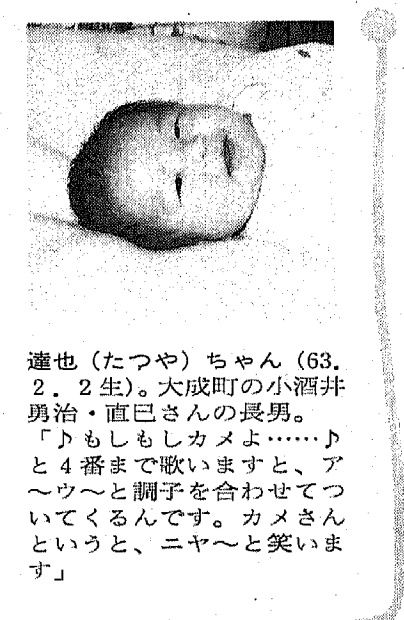 達也（たつや）ちゃん（63．
2．2生）。大成町の小酒井
勇治・直巳さんの長男。
「♪もしもしカメよ……♪
と4番まで歌いますと、ア
～ウ～と調子を合わせてつ
いてくるんです。カメさん
というと、ニヤ～と笑いま
す」